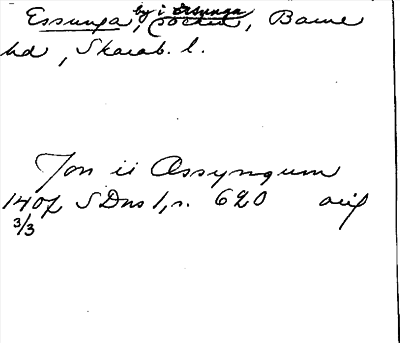 Essunga, by i Essunga, Barne
hd, Skarab. l.
Jon ii Assyngum
1407 SDns 1, r. 620 avig
3/3